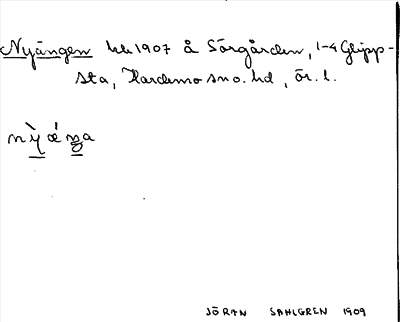 Nyängen bb 1907 å Sörgården, 1-4 Glipp-
sta, Hardemo sn o. hd, Ör. l.
nỳǽŋa
JÖRAN SAHLGREN 1909